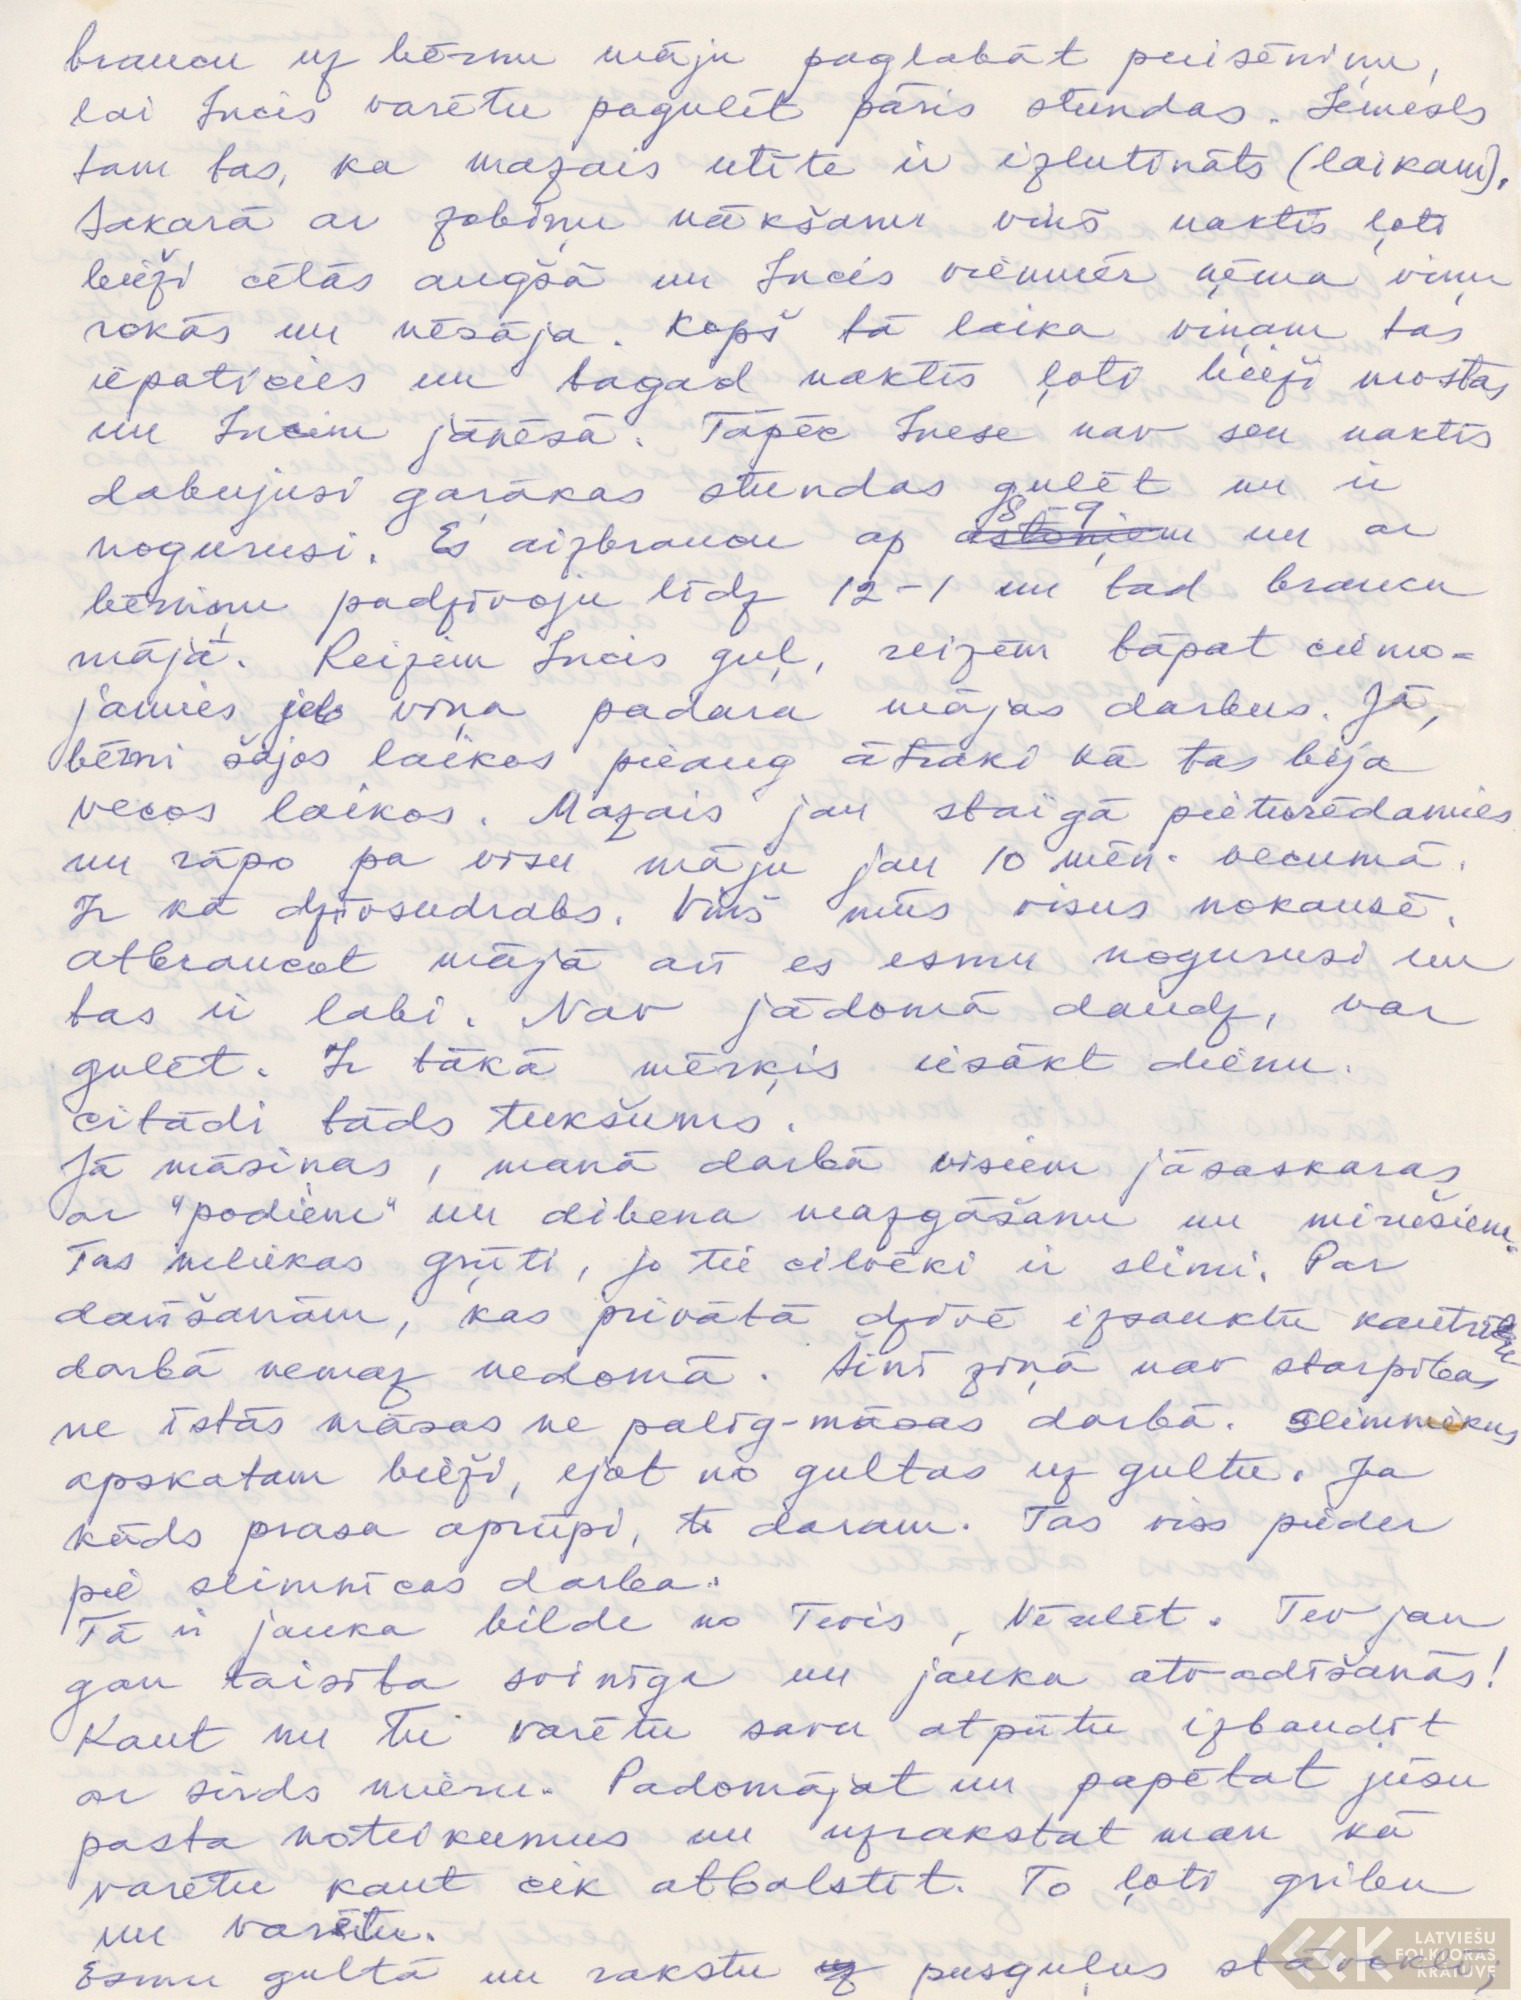 braucu uz bērnu māju paglabāt puisēniņu,
lai Incis varētu pagulēt pāris stundas. Iemesls
tam tas, ka mazais utīte ir izlutināts (laikam).
Sakarā ar zobiņu nākšanu viņš naktīs ļoti
bieži cēlās augšā un Incis vienmēr ņēma viņu
rokās un nēsāja. Kopš tā laika viņam tas
iepaticies un tagad naktīs ļoti bieži mostas
un Incim jānēsā. Tāpēc Inese nav sen naktīs
dabujusi garākas stundas gulēt un ir
nogurusi. Es aizbraucu ap astoņiem 8-9 un ar
bērniņu padzīvoju līdz 12-1 un tad braucu
mājā. Reizēm Incis guļ, reizēm tāpat ciemo-
jamies jeb viņa padara mājas darbus. Jā,
bērni šajos laikos pieaug ātrāki kā tas bija
vecos laikos. Mazais jau staigā pieturēdamies
un rāpo pa visu māju jau 10 mēn. vecumā.
Ir kā dzīvsudrabs. Viņš mūs visus nokausē.
atbraucot mājā arī es esmu nogurusi un
tas ir labi. Nav jādomā daudz, var
gulēt. Ir tākā mērķis iesākt dienu.
citādi tāds tukšums.
Jā māsiņas, manā darbā visiem jāsaskaras
ar "podiem" un dibena mazgāšanu un mirušiem.
Tas neliekas grūti, jo tie cilvēki ir slimi. Par
darīšanām, kas privātā dzīvē izsauktu kautrību
darbā nemaz nedomā. Šinī ziņā nav starpības
ne īstās māsas ne palīg-māsas darbā. Slimniekus
apskatam bieži, ejot no gultas uz gultu. Ja
kāds prasa aprūpi, to daram. Tas viss pieder
pie slimnīcas darba.
Tā ir jauka bilde no Tevis, Vēulēt. Tev jau
gan taisīta svinīga un jauka atvadīšanās!
Kaut nu Tu varētu savu atpūtu izbaudīt
ar sirds mieru. Padomājat un papētat jūsu
pasta noteikumus un uzrakstat man kā
varētu kaut cik atbalstīt. To ļoti gribu
un varētu.
Esmu gultā un rakstu uz pusguļus stāvoklī;
LATVIEŠU
FOLKLORAS
KRĀTUVE